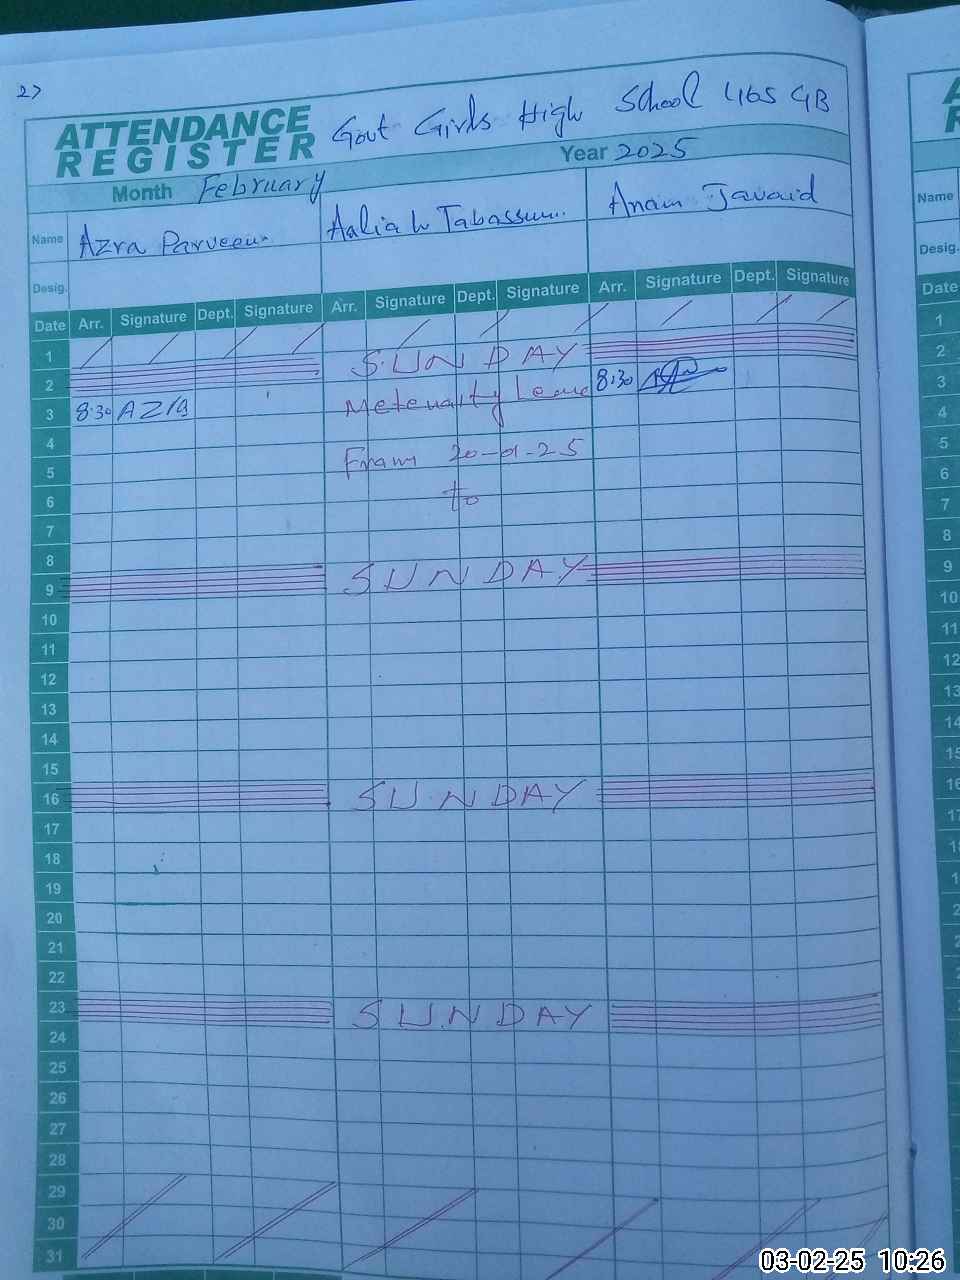 27
ATTENDANCE REGISTER Govt Girls High School 465 GB
Month February Year 2025
Name Azra Parveen. Aaliah Tabassum. Anam Javaid
Desig.
Date Arr. Signature Dept. Signature Arr. Signature Dept. Signature Arr. Signature Dept. Signature
1
2 SUNDAY
3 8:30 AZRA Meternaity Leave 8:30
4
5 From 20-01-25
6 to
7
8
9 SUNDAY
10
11
12
13
14
15
16 SUNDAY
17
18
19
20
21
22
23 SUNDAY
24
25
26
27
28
29
30
31
Name
Desig.
Date
1
2
3
4
5
6
7
8
9
10
11
12
13
14
15
16
17
03-02-25 10:26